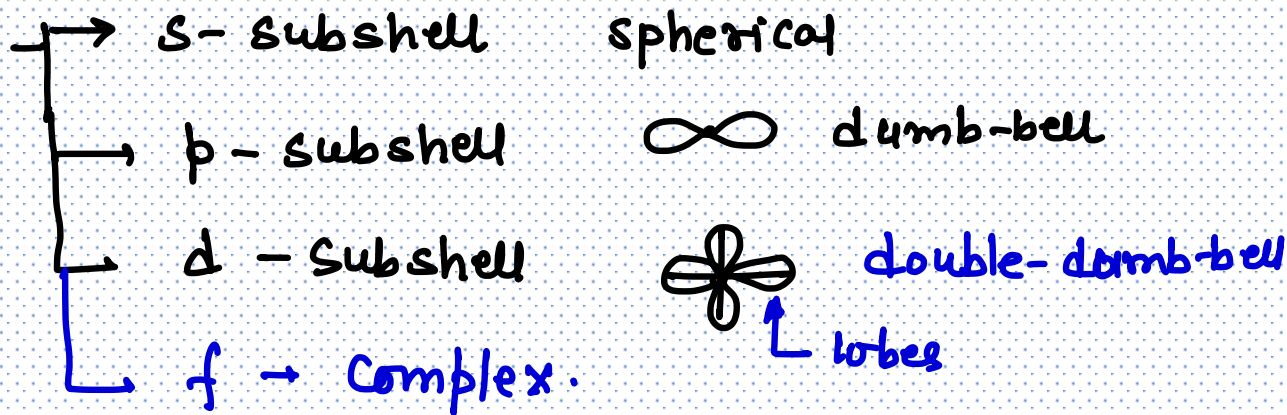 s- subshell spherical
p - subshell dumb-bell
d - Subshell double-dumb-bell
lobes
f - Complex.